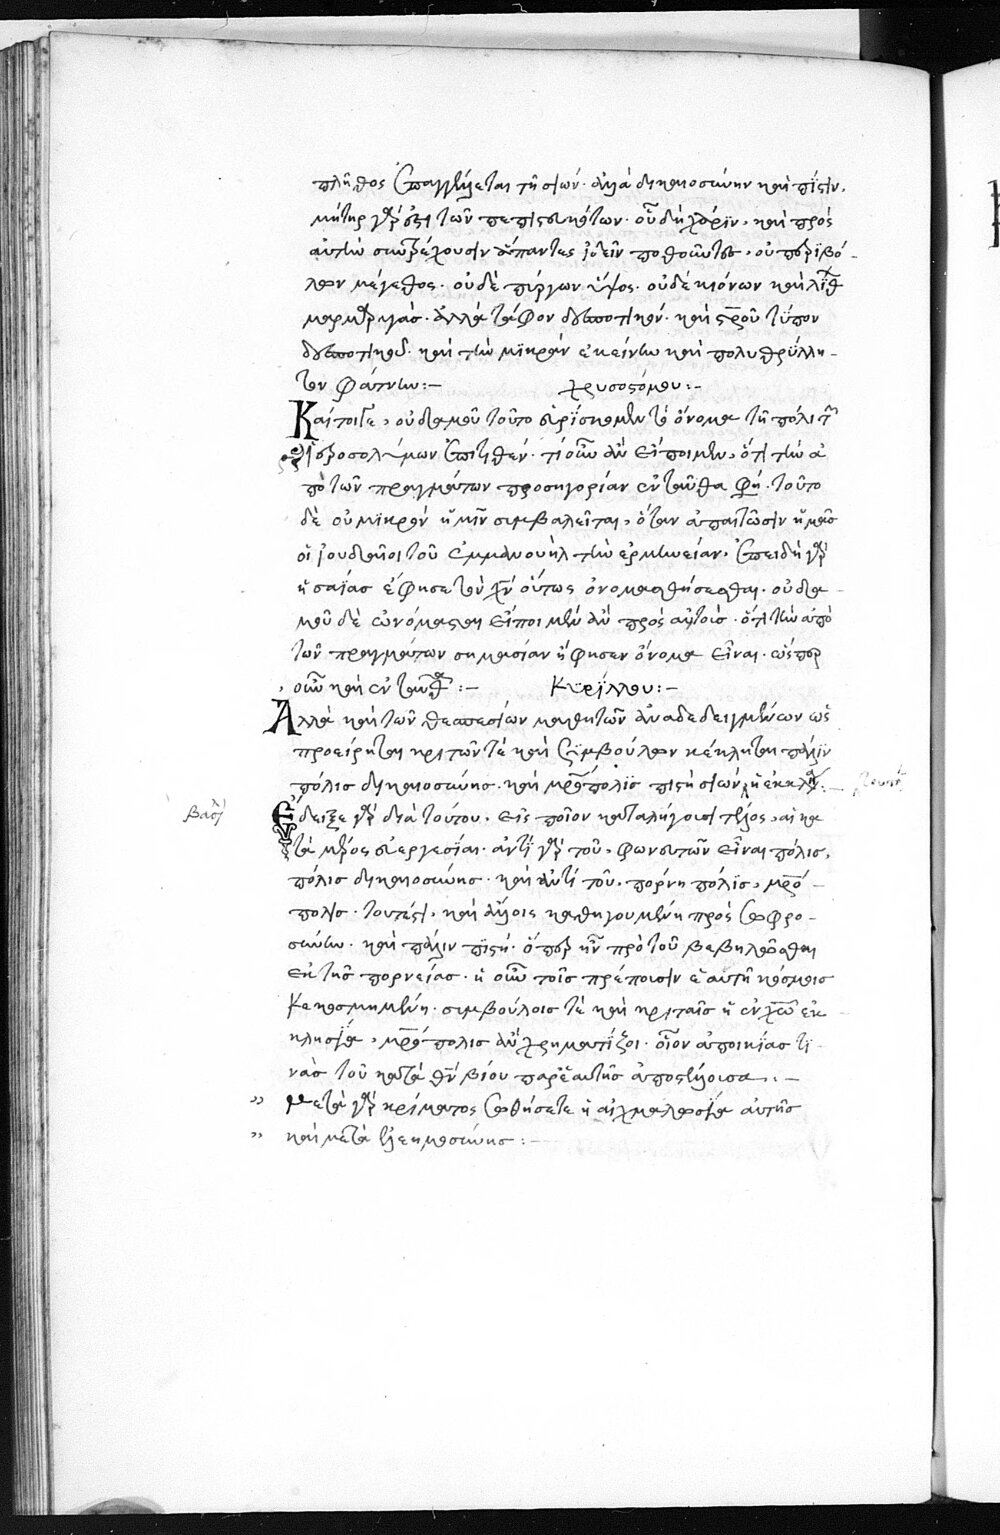 πλῆθος ἐπαγγέλλεται τῇ σιών· ἀλλὰ δικαιοσύνην καὶ πίστιν,
μήτηρ γάρ ἐστι τῶν πεπιστευκότων· οὗ δὴ χάριν, καὶ πρὸς
αὐτὴν συντρέχουσιν ἅπαντες ἰδεῖν ποθοῦντες, οὐ περιβό-
λων μέγεθος· οὐδὲ πύργων ὕψος· οὐδὲ κιόνων καὶ λίθ
μαρμαρυγὰς· ἀλλὰ τάφον δεσποτικόν· καὶ σροῦ τύπον
δεσποτικοῦ· καὶ τὴν μικρὰν ἐκείνην καὶ πολυθρύλλη-
τον φάτνην:– χρυσοστόμου:–
Καίτοιγε, οὐδαμοῦ τοῦτο εὑρίσκομεν τὸ ὄνομα τῇ πόλει τ
ἱεροσολύμων ἐπιτεθέν· τί οὖν ἂν εἴποιμεν, ὅτι τὴν ἀ
πὸ τῶν πραγμάτων προσηγορίαν ἐνταῦθα φη· τοῦτο
δὲ οὐ μικρὸν ἡμῖν συμβαλεῖται, ὅταν ἀπαιτῶσιν ἡμᾶς
οἱ ἰουδαῖοι τοῦ ἐμμανουὴλ τὴν ἑρμηνείαν, ἐπειδὴ γὰρ
ἡσαΐας ἔφησε τὸν χν οὕτως ὀνομασθήσεσθαι· οὐδα-
μοῦ δὲ ὠνόμασται εἴποιμεν ἂν πρὸς αὐτοὺς· ὅτι τὴν ἀπὸ
τῶν πραγμάτων σημασίαν ἔφησεν ὄνομα εἶναι· ὥσπερ
οὖν καὶ ἐνταῦθ:– Κυρίλλου:–
Ἀλλὰ καὶ τῶν θεσπεσίων μαθητῶν ἀναδεδειγμένων ὡς
προείρηται κριτῶν τε καὶ συμβούλων κέκληται πάλιν
πόλις δικαιοσύνης· καὶ μρόπολις πιστὴ σιών, ἡ ἐκκλ:–
βασ
Ἔδειξε γὰρ διὰ τούτου, εἰς ποῖον καταλήγουσι τέλος, αἱ κα
τὰ μέρος εὐεργεσίαι· ἀντὶ γὰρ τοῦ, φονευτῶν εἶναι πόλις,
πόλις δικαιοσύνης· καὶ ἀντὶ τοῦ, πόρνη πόλις, μρό-
πολις· τουτέστι, καὶ ἄλλοις καθηγουμένη πρὸς σωφρο-
σύνην· καὶ πάλιν πιστή· ὅπερ ἦν πρὸ τοῦ βεβηλῶσθαι
ἐκ τῆς πορνείας· ἡ οὖν τοῖς πρέπουσιν ἑαυτῇ κόσμοις
κεκοσμημένη· συμβούλοις τὲ καὶ κριταῖς ἡ ἐν χῶ ἐκ
κλησία, μρόπολις ἂν χρηματίζοι· οἷον ἀποικίας τι-
νὰς τοῦ κατὰ θν βίου παρ' ἑαυτῆς ἀποστέλλουσα:–
» Μετὰ γὰρ κρίματος σωθήσεται ἡ αἰχμαλωσία αὐτῆς
» καὶ μετὰ ἐλεημοσύνης:–